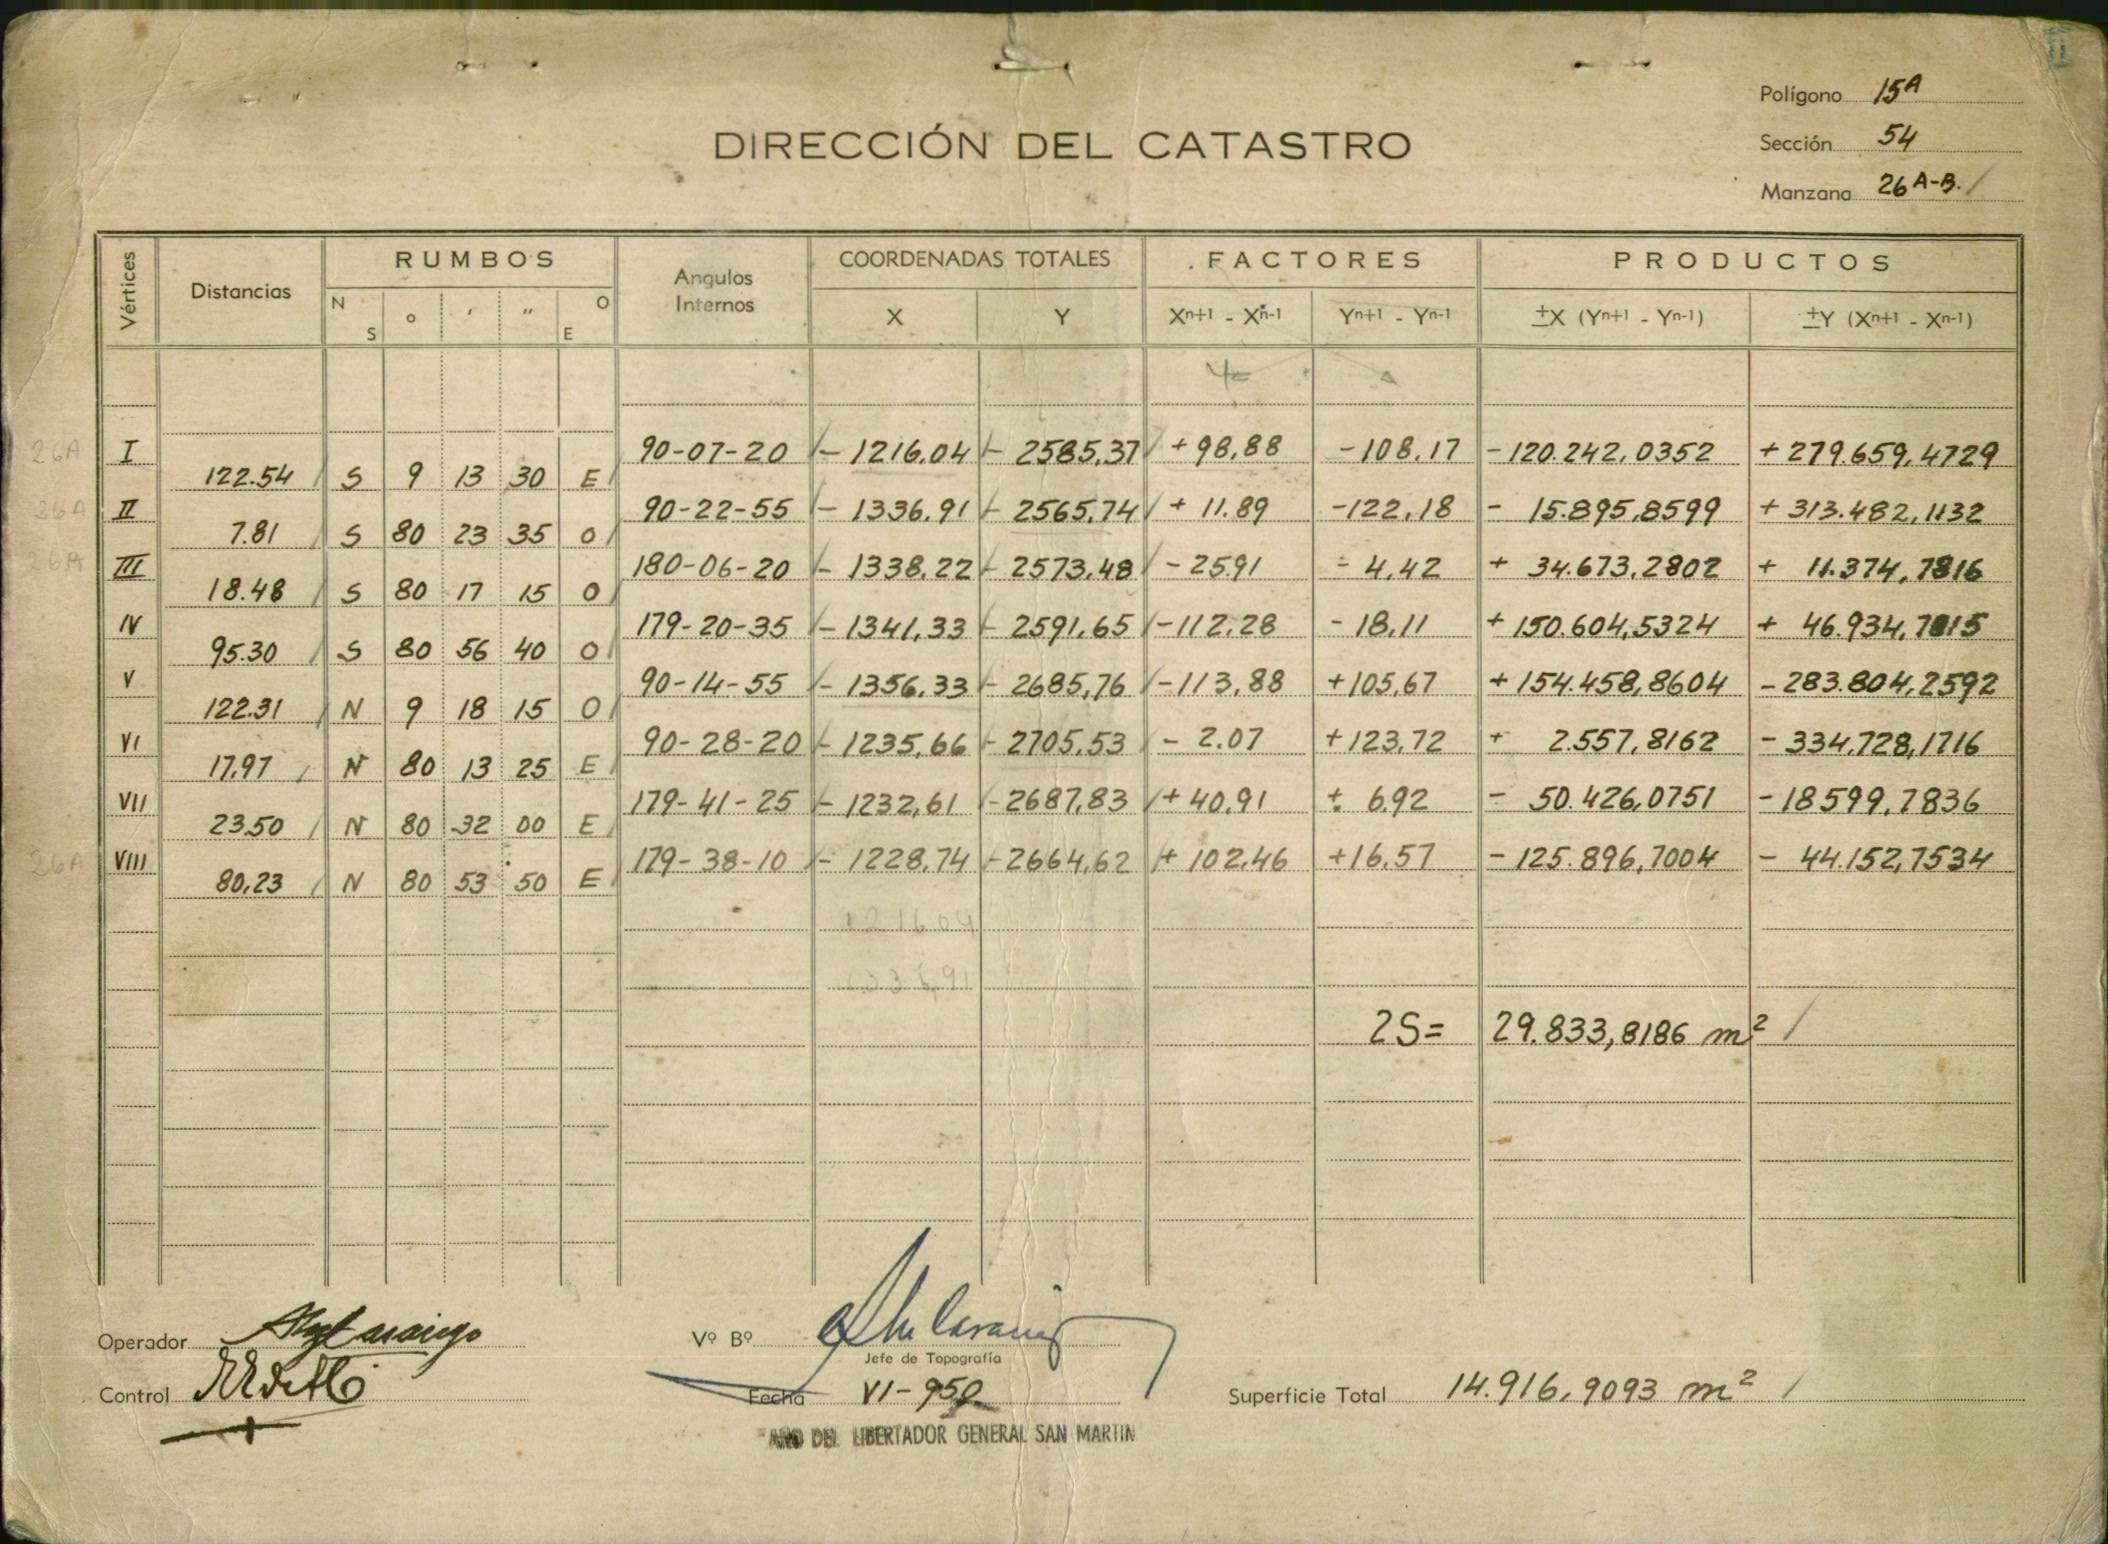 Polígono 15A
DIRECCIÓN DEL CATASTRO
Sección 54
Manzana 26 A-B. /
Vértices Distancias RUMBOS Angulos Internos COORDENADAS TOTALES FACTORES PRODUCTOS
N S ° ' " O E X Y Xn+1 - Xn-1 Yn+1 - Yn-1 ±X (Yn+1 - Yn-1) ±Y (Xn+1 - Xn-1)
26A I 90-07-20 - 1216,04 - 2585,37 +98,88 -108,17 -120.242,0352 +279.659,4729
122.54 S 9 13 30 E
26A II 90-22-55 - 1336,91 - 2565,74 + 11.89 -122,18 - 15.895,8599 +313.482,1132
7.81 S 80 23 35 O
26A III 180-06-20 - 1338,22 - 2573,48 - 25.91 - 4,42 + 34.673,2802 + 11.374,7816
18.48 S 80 17 15 O
IV 179-20-35 - 1341,33 - 2591,65 -112,28 - 18,11 +150.604,5324 + 46.934,7815
95.30 S 80 56 40 O
V 90-14-55 - 1356,33 - 2685,76 -113,88 +105,67 +154.458,8604 -283.804,2592
122.31 N 9 18 15 O
VI 90-28-20 - 1235,66 - 2705,53 - 2.07 +123,72 + 2.557,8162 - 334,728,1716
17,97 N 80 13 25 E
VII 179-41-25 - 1232,61 -2687,83 + 40,91 + 6.92 - 50.426,0751 -18599,7836
23.50 N 80 32 00 E
26A VIII 179-38-10 - 1228,74 -2664,62 + 102,46 +16,57 - 125.896,7004 - 44.152,7534
80,23 N 80 53 50 E
1216 04
2S= 29.833,8186 m² /
Operador
Vº Bº
Jefe de Topografía
Control
Fecha VI-950
Superficie Total 14.916,9093 m² /
"AÑO DEL LIBERTADOR GENERAL SAN MARTIN